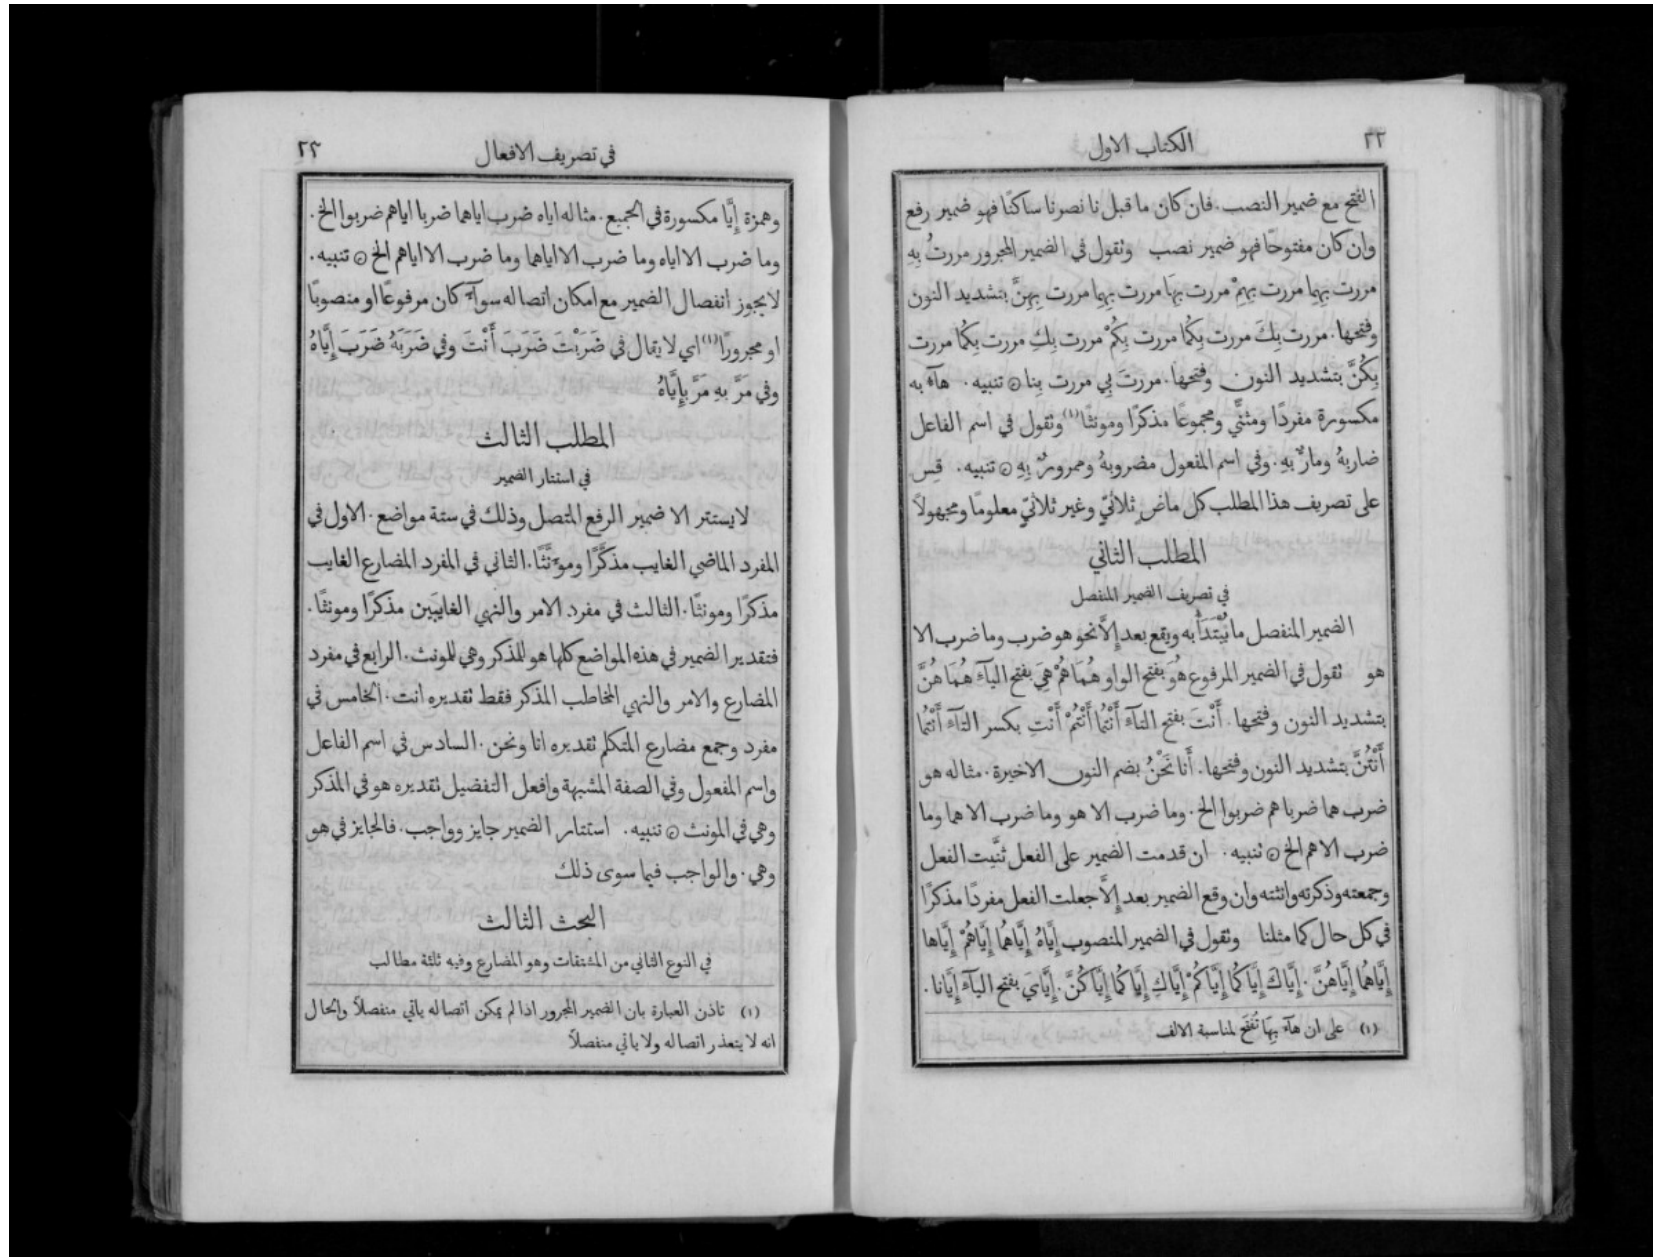 ٢٢
الكتاب الاول
الفتح مع ضمير النصب. فان كان ما قبل نا نصرنا ساكنًا فهو ضمير رفع
وان كان مفتوحًا فهو ضمير نصب وتقول في الضمير المجرور مررتُ بِهِ
مررت بِهِما مررت بِهِمْ مررت بِهَا مررت بِهِما مررت بِهِنَّ بتشديد النون
وفتحها. مررت بِكَ مررت بِكُما مررت بِكُمْ مررت بِكِ مررت بِكُما مررت
بِكُنَّ بتشديد النون وفتحها. مررتَ بِي مررت بِنا ۞ تنبيه. هآء به
مكسورة مفردًا ومثنَّي ومجموعًا مذكرًا ومونثًا (١) وتقول في اسم الفاعل
ضاربهُ ومارٌّ بهِ. وفي اسم المفعول مضروبهُ وممرورٌ بِهِ ۞ تنبيه. قِس
على تصريف هذا المطلب كل ماضٍ ثلاثيّ وغير ثلاثيّ معلومًا ومجهولاً
المطلب الثاني
في تصريف الضمير المنفصل
الضمير المنفصل ما يُبْتَدَأُ به ويقع بعد إلاَّ نحو هو ضرب وما ضرب الا
هو تقول في الضمير المرفوع هُوَ بفتح الواو هُمَا هُمْ هِيَ بفتح اليآء هُمَا هُنَّ
بتشديد النون وفتحها. أَنْتَ بفتح التآء أَنْتُمَا أَنْتُمْ أَنْتِ بكسر التآء أَنْتُمَا
أَنْتُنَّ بتشديد النون وفتحها. أَنا نَحْنُ بضم النون الاخيرة. مثاله هو
ضرب هما ضربا هم ضربوا الخ. وما ضرب الا هو وما ضرب الا هما وما
ضرب الا هم الخ ۞ تنبيه. ان قدمت الضمير على الفعل ثنَّيت الفعل
وجمعته وذكرته وانثته وان وقع الضمير بعد إِلاَّ جعلت الفعل مفردًا مذكرًا
في كل حال كما مثلنا وتقول في الضمير المنصوب إِيَّاهُ إِيَّاهُما إِيَّاهُمْ إِيَّاها
إِيَّاهُما إِيَّاهُنَّ. إِيَّاكَ إِيَّاكُما إِيَّاكُمْ إِيَّاكِ إِيَّاكُما إِيَّاكُنَّ. إِيَّايَ بفتح اليآء إِيَّانا.
(١) على ان هآء بِهَا تُفتَح لمناسبة الالف
في تصريف الافعال
٢٣
وهمزة إِيَّا مكسورة في الجميع. مثاله اياه ضرب اياهما ضربا اياهم ضربوا الخ.
وما ضرب الا اياه وما ضرب الا اياهما وما ضرب الا اياهم الخ ۞ تنبيه.
لا يجوز انفصال الضمير مع امكان اتصاله سوآء كان مرفوعًا او منصوبًا
او مجرورًا (١) اي لا يقال في ضَرَبْتَ ضَرَبَ أَنْتَ وفي ضَرَبَهُ ضَرَبَ إِيَّاهُ
وفي مَرَّ بهِ مَرَّ بإِيَّاهُ
المطلب الثالث
في استتار الضمير
لا يستتر الا ضمير الرفع المتصل وذلك في ستة مواضع. الاول في
المفرد الماضي الغايب مذكَّرًا وموءنَّثًا. الثاني في المفرد المضارع الغايب
مذكرًا ومونثًا. الثالث في مفرد الامر والنهي الغايِبَين مذكرًا ومونثًا.
فتقدير الضمير في هذه المواضع كلها هو للمذكر وهي للمونث. الرابع في مفرد
المضارع والامر والنهي المخاطب المذكر فقط تقديره انت. الخامس في
مفرد وجمع مضارع المتكلم تقديره انا ونحن. السادس في اسم الفاعل
واسم المفعول وفي الصفة المشبهة وافعل التفضيل تقديره هو في المذكر
وهي في المونث ۞ تنبيه. استتار الضمير جايز وواجب. فالجايز في هو
وهي. والواجب فيما سوى ذلك
البحث الثالث
في النوع الثاني من المشتقات وهو المضارع وفيه ثلثة مطالب
(١) تاذن العبارة بان الضمير المجرور اذا لم يمكن اتصاله ياتي منفصلاً والحال
انه لا يتعذر اتصاله ولا ياتي منفصلاً